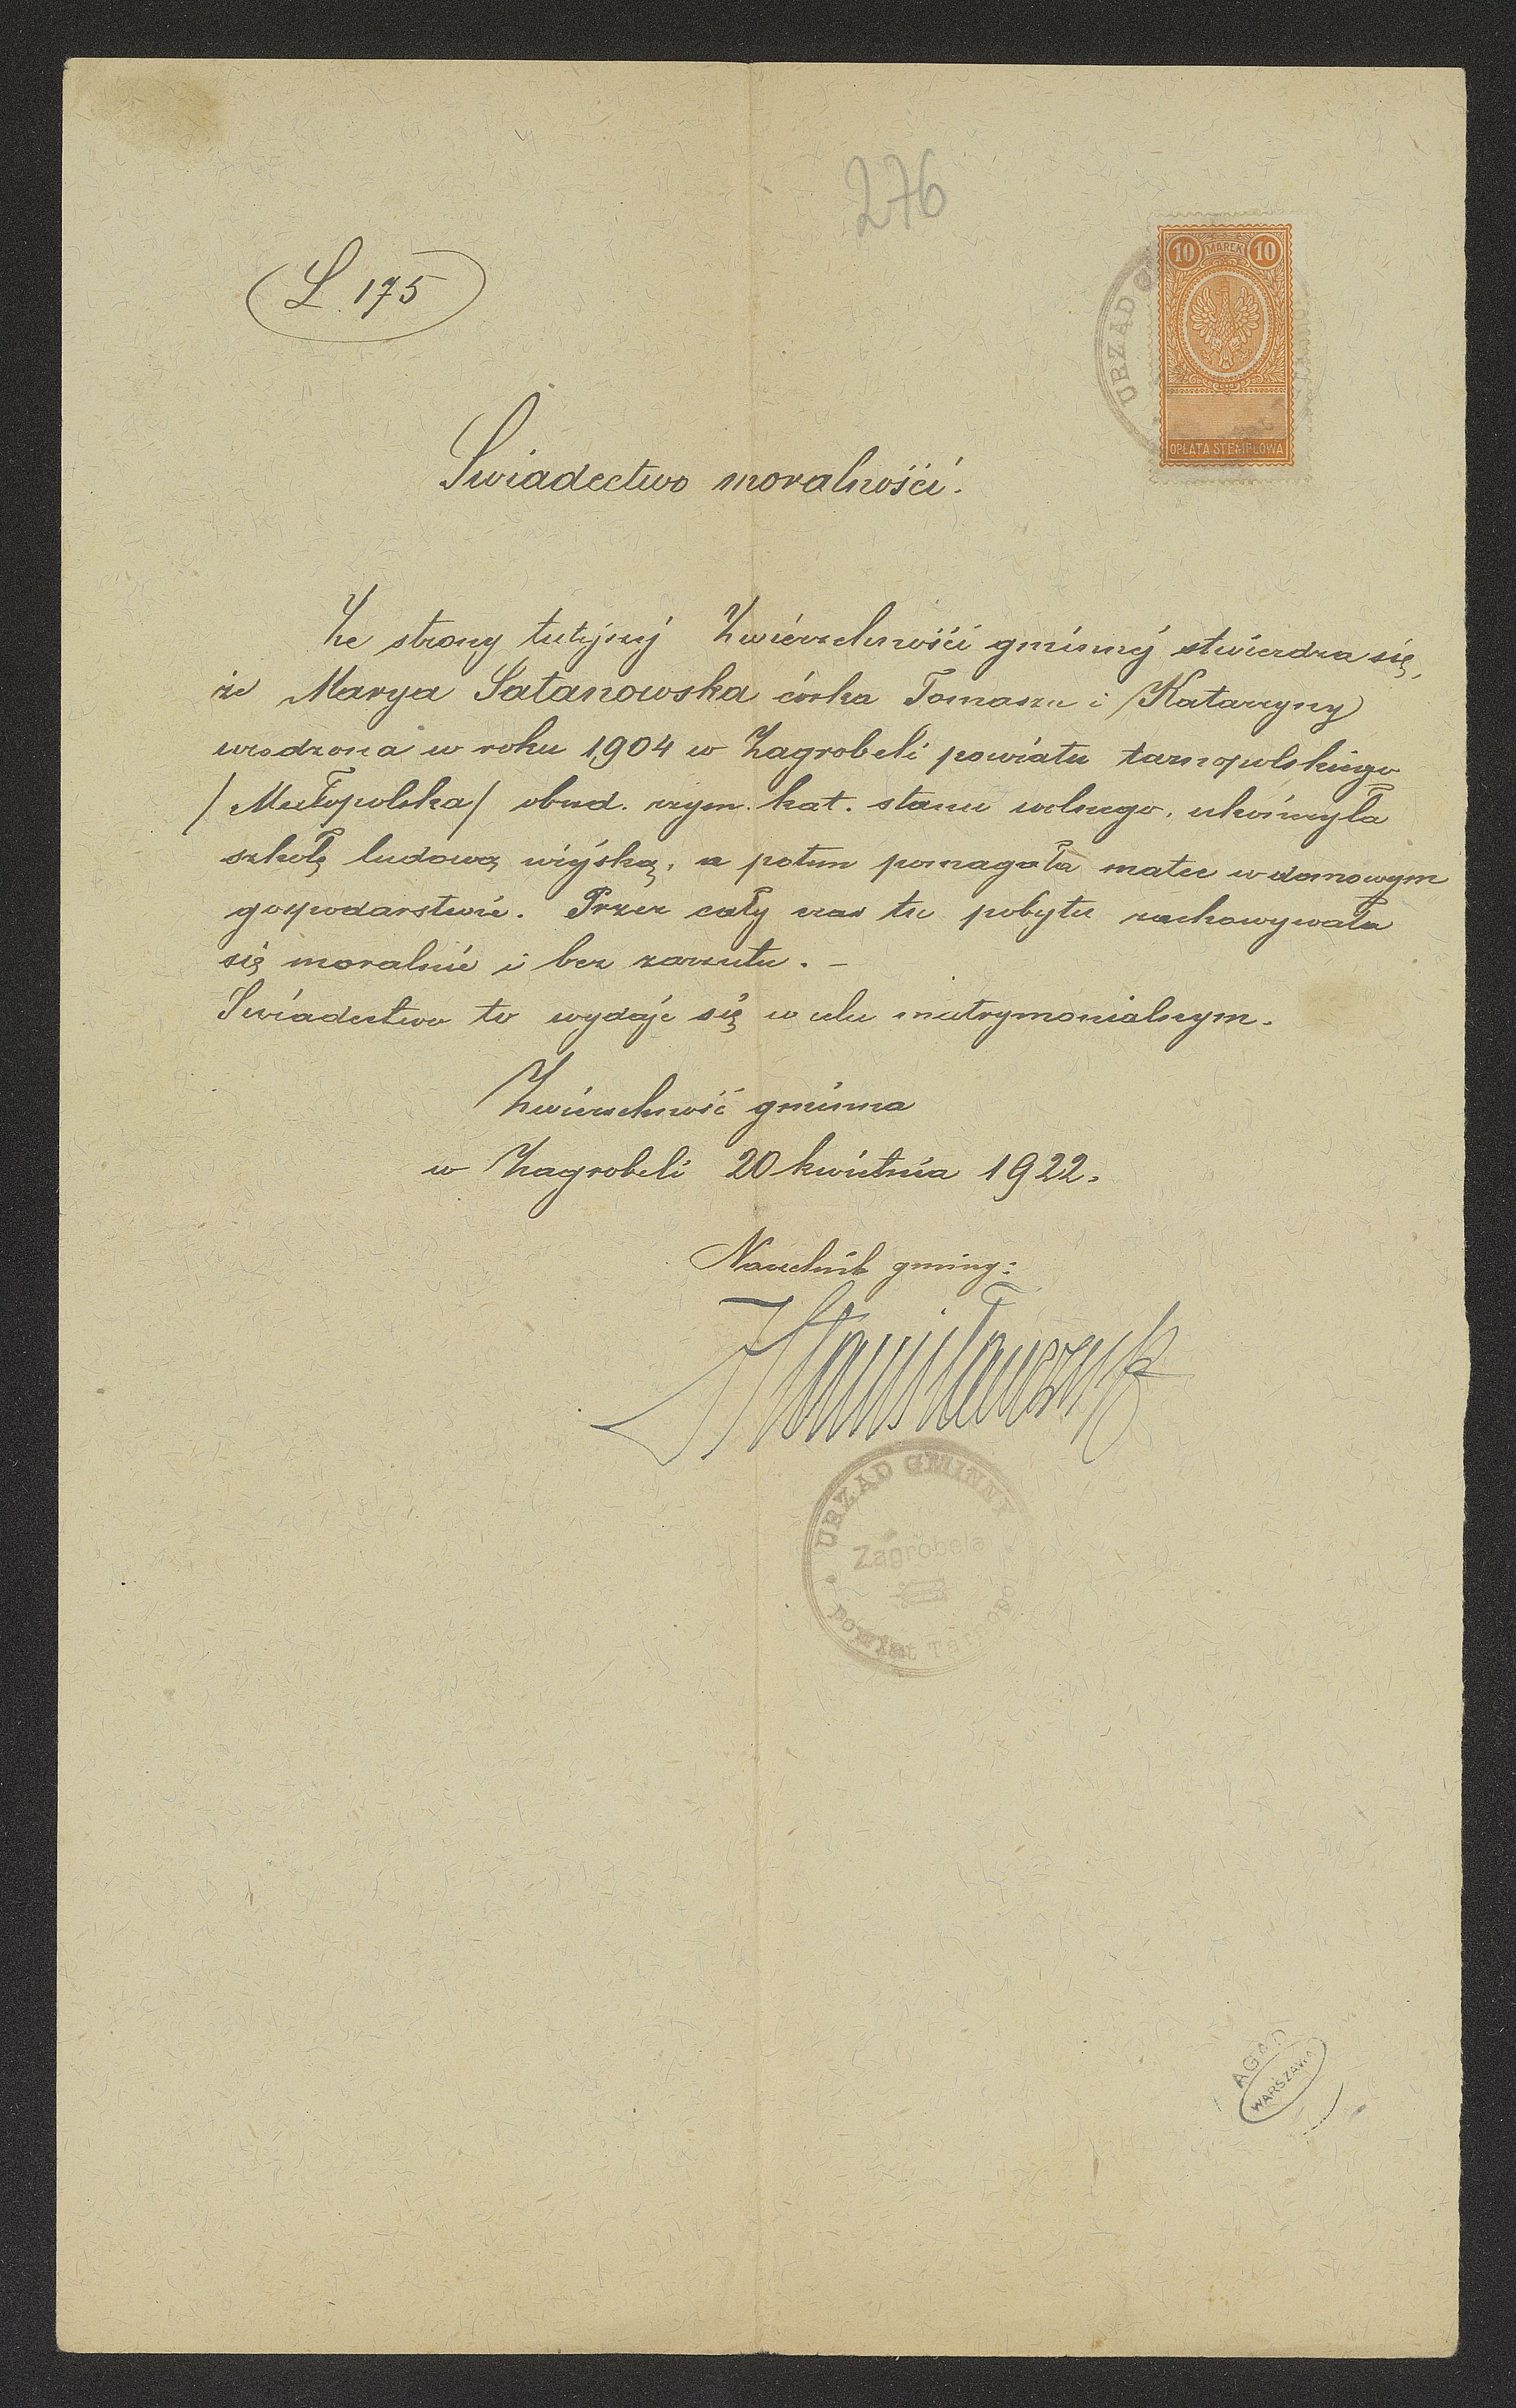 276
L. 175
10 MAREK 10
URZĄD G
OPŁATA STEMPLOWA
Świadectwo moralności.
Ze strony tutejszej Zwierzchności gminnej stwierdza się,
że Marya Satanowska córka Tomasza i Katarzyny
urodzona w roku 1904 w Zagrobeli powiatu tarnopolskiego
/Małopolska/ obrząd. rzym. kat. stanu wolnego, ukończyła
szkołę ludową wiejską, a potem pomagała matce w domowym
gospodarstwie. Przez cały czas tu pobytu zachowywała
się moralnie i bez zarzutu. –
Świadectwo to wydaje się w celu matrymonialnym.
Zwierzchność gminna
w Zagrobeli 20 kwietnia 1922.
Naczelnik gminy:
Stanisławczyk
URZĄD GMINNY
Zagrobela
powiat Tarnopol
AGAD
WARSZAWA